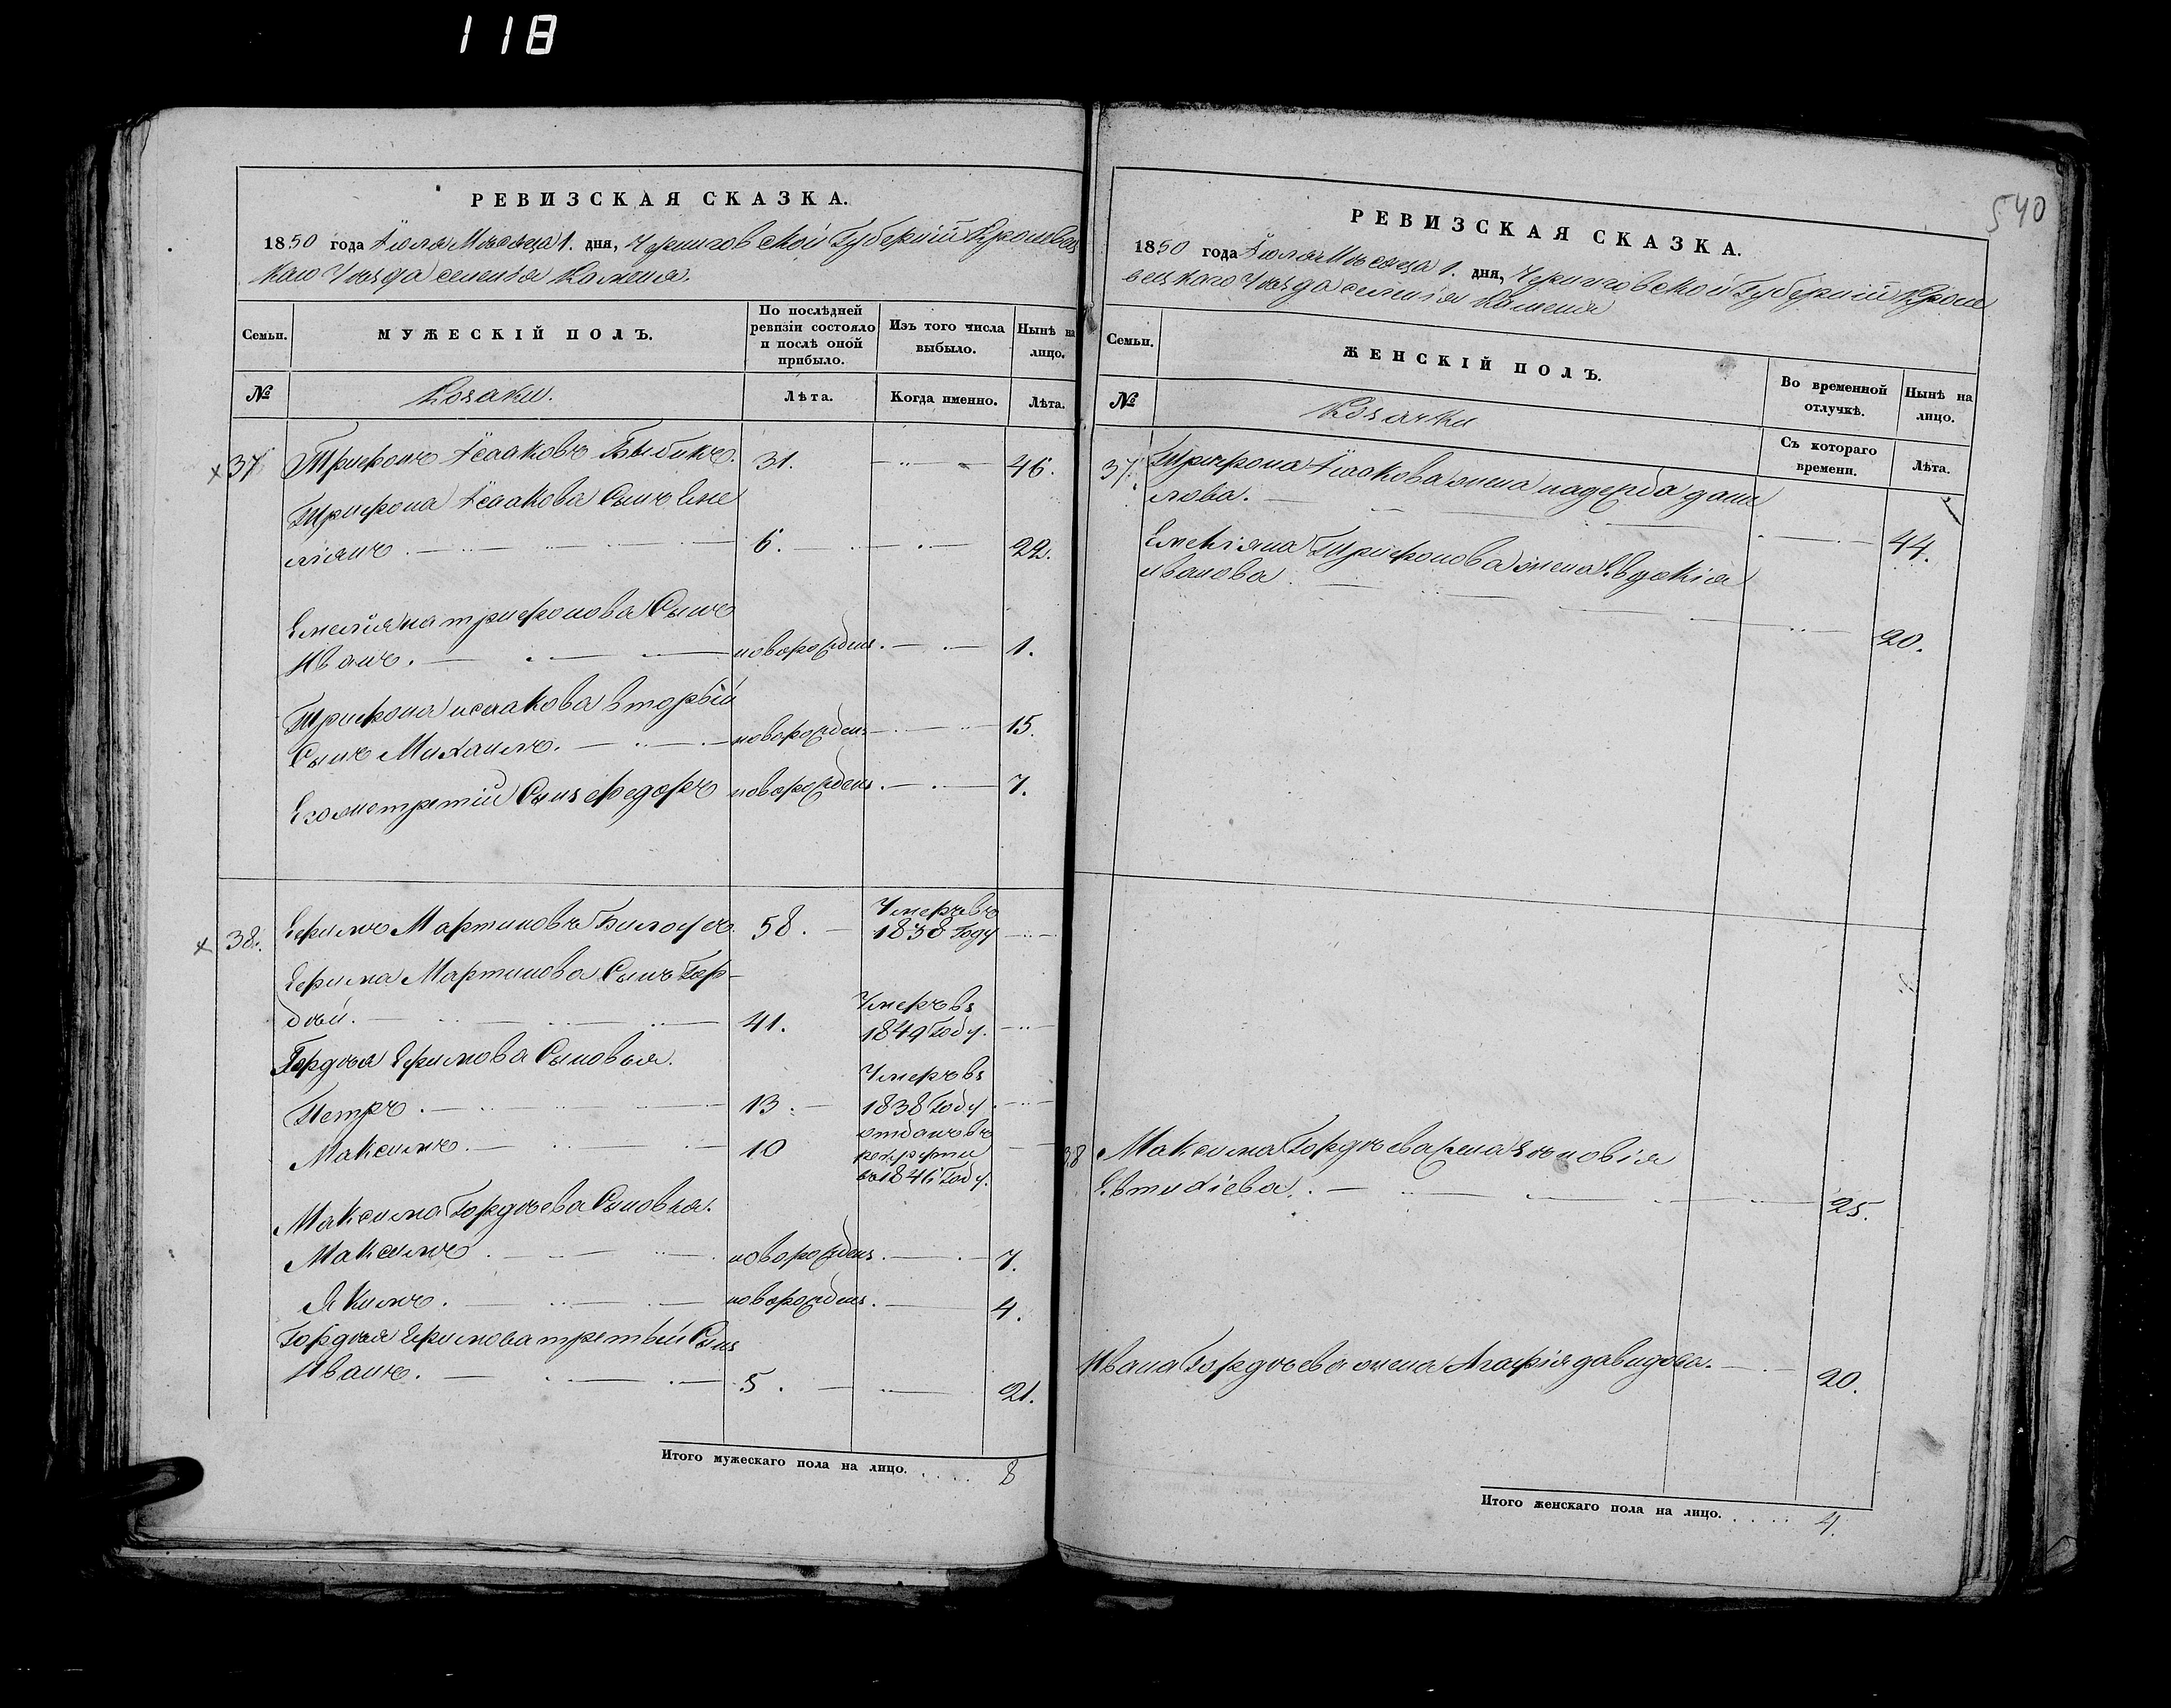 118
РЕВИЗСКАЯ СКАЗКА.
1850 года Іюля Мѣсяца 1. дня, Черниговской Губерніи Кролевец
каго Уѣзда селенія Каменя.
Семьи.
МУЖЕСКІЙ ПОЛЪ.
По послѣдней ревизіи состояло и послѣ оной прибыло.
Изъ того числа выбыло.
Нынѣ на лицо.
№
Козаки.
Лѣта.
Когда именно.
Лѣта.
37 Трифонъ Ісааковъ 31. 46.
Трифона Ісаакова Сынъ Еме
ліянъ. 6. 22.
Емеліяна трифонова Сынъ
Иванъ. новорожден. 1.
Трифона исаакова вторый
Сынъ Михаилъ. новорожден 15.
Егоже третій Сынъ Федоръ новорожден. 7.
38. Ефимъ Мартиновъ Билоусъ 58. Умеръ въ 1838 Году
Ефима Мартинова Сынъ Гор-
дѣй. 41. Умеръ въ 1849 Году.
Гордѣя Ефимова Сыновья.
Петръ. 13. Умеръ въ 1838 Году
Максимъ. 10 отданъ въ рекруты въ 1846 Году.
Максима Гордѣева Сыновья.
Максимъ. новорожден. 7.
Якимъ. новорожден. 4.
Гордѣя Ефимова третый Сынъ
Иванъ. 5. 21.
Итого мужескаго пола на лицо. 8
540
РЕВИЗСКАЯ СКАЗКА.
1850 года Іюля Мѣсяца 1. дня, Черниговской Губерніи Кроле
вецкаго Уѣзда селенія Каменя
Семьи.
ЖЕНСКІЙ ПОЛЪ.
Во временной отлучкѣ.
Нынѣ на лицо.
№
Козачки
Съ котораго времени.
Лѣта.
37. Трифона Ісаакова жена дани
лова. 44.
Емеліяна Трифонова жена Евдокія
иванова. 20.
38 Максима Гордѣева жена Зѣновія
Евтихіева. 25.
Ивана Гордѣева жена Агафія давидова. 20.
Итого женскаго пола на лицо. 4.